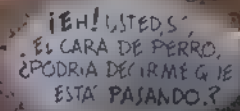 ¡EH! USTED, SÍ,
EL CARA DE PERRO,
¿PODRIA DECIRME QUE
ESTÁ PASANDO?